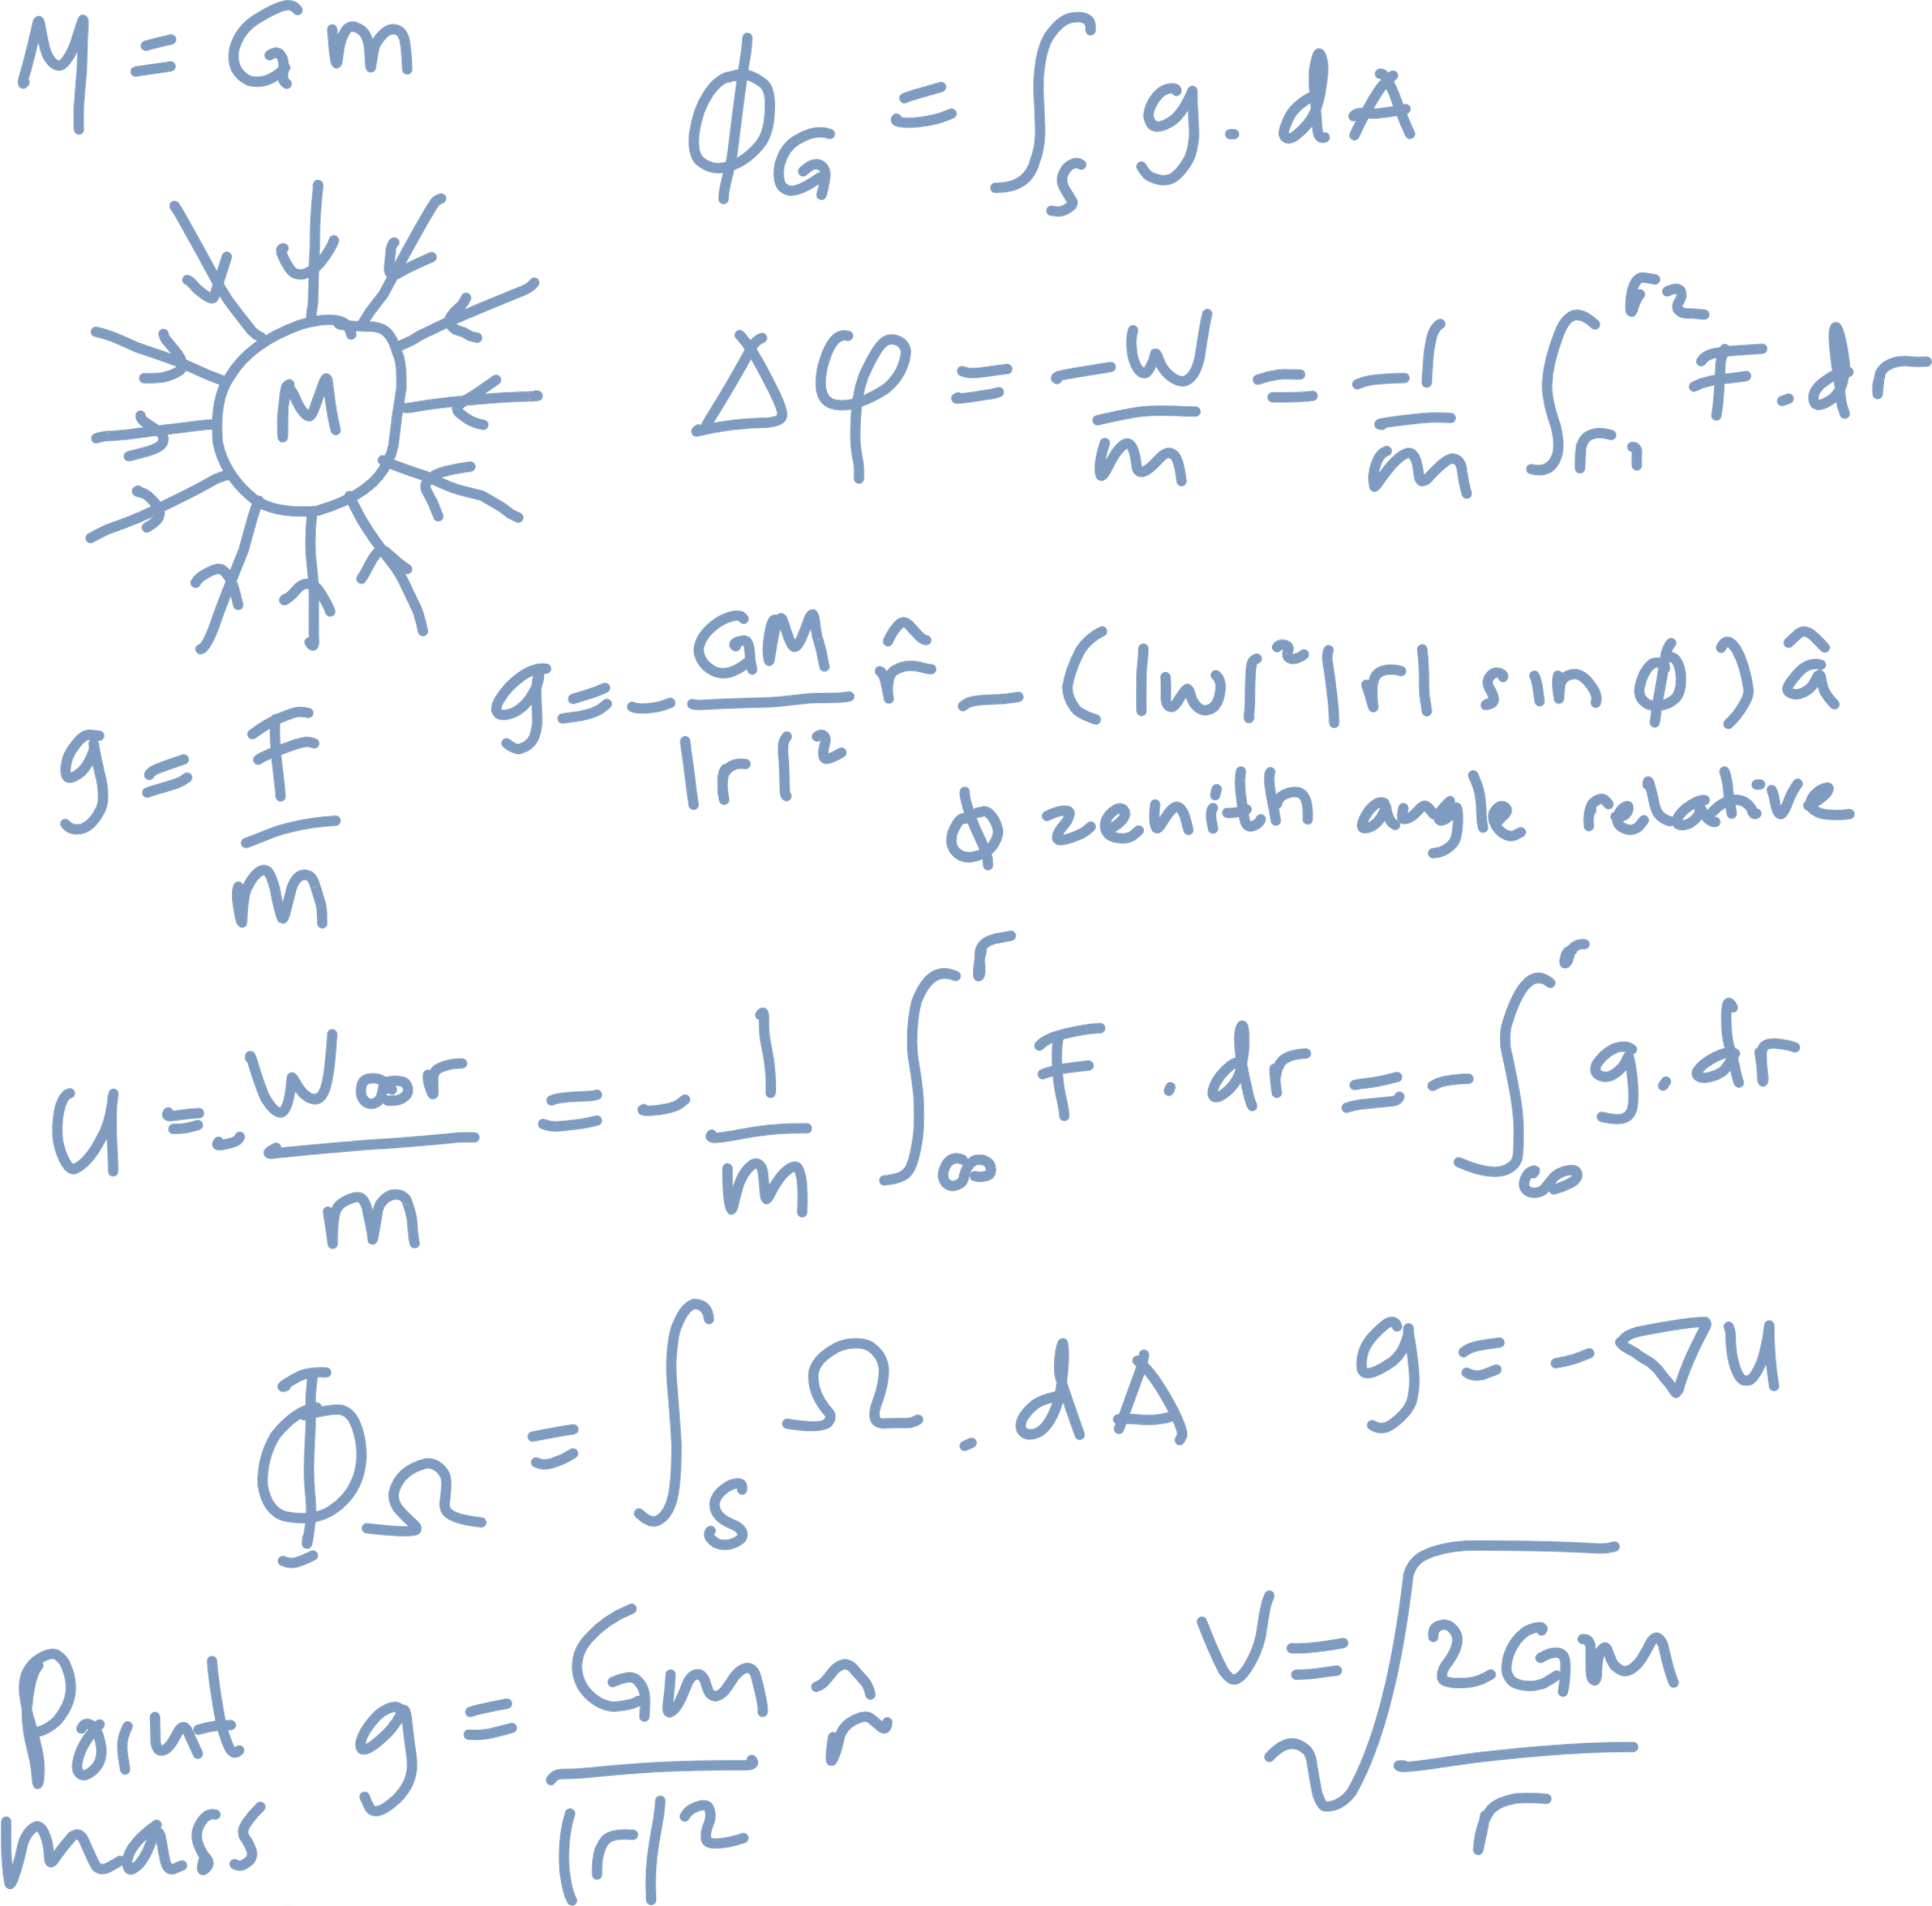 μ = Gm
ϕ_G = ∫_S g. dA
M
Δφ = -W/m = -1/m ∫_{r1}^{r2} F. dr
g = F/m
g = - GM/|r|² r̂ - (|w|²|r| sin ϕ) â
ϕ zenith angle relative
U = - W∞r/m = - 1/m ∫_∞^r F . dr = - ∫_∞^r g . dr
Φ_Ω = ∫_S Ω . dA
g = - ∇U
Point mass g = Gm/|r|² r̂
v = √(2Gm/r)